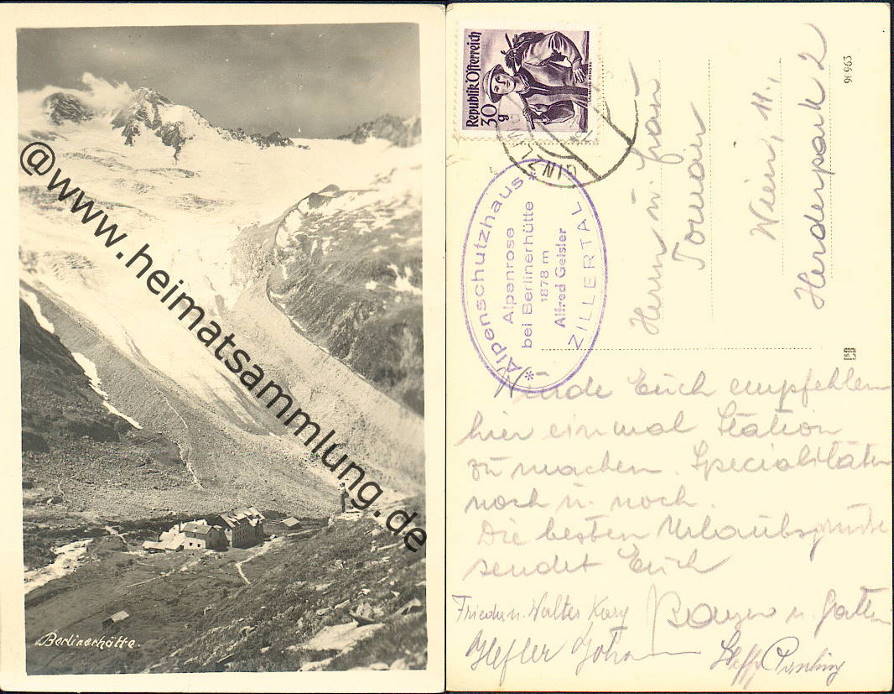 @www.heimatsammlung.de
Berlinerhütte.
Republik Österreich
30
g
*Alpenschutzhaus*
Alpenrose
bei Berlinerhütte
1878 m
Alfred Geisler
ZILLERTAL
Herrn u. Frau
Toman
Wien, 11.,
Herderpark 2
Würde Euch empfehlen
hier einmal Station
zu machen. Specialitäten
noch u. noch.
Die besten Urlaubsgrüße
sendet Euch
Walter